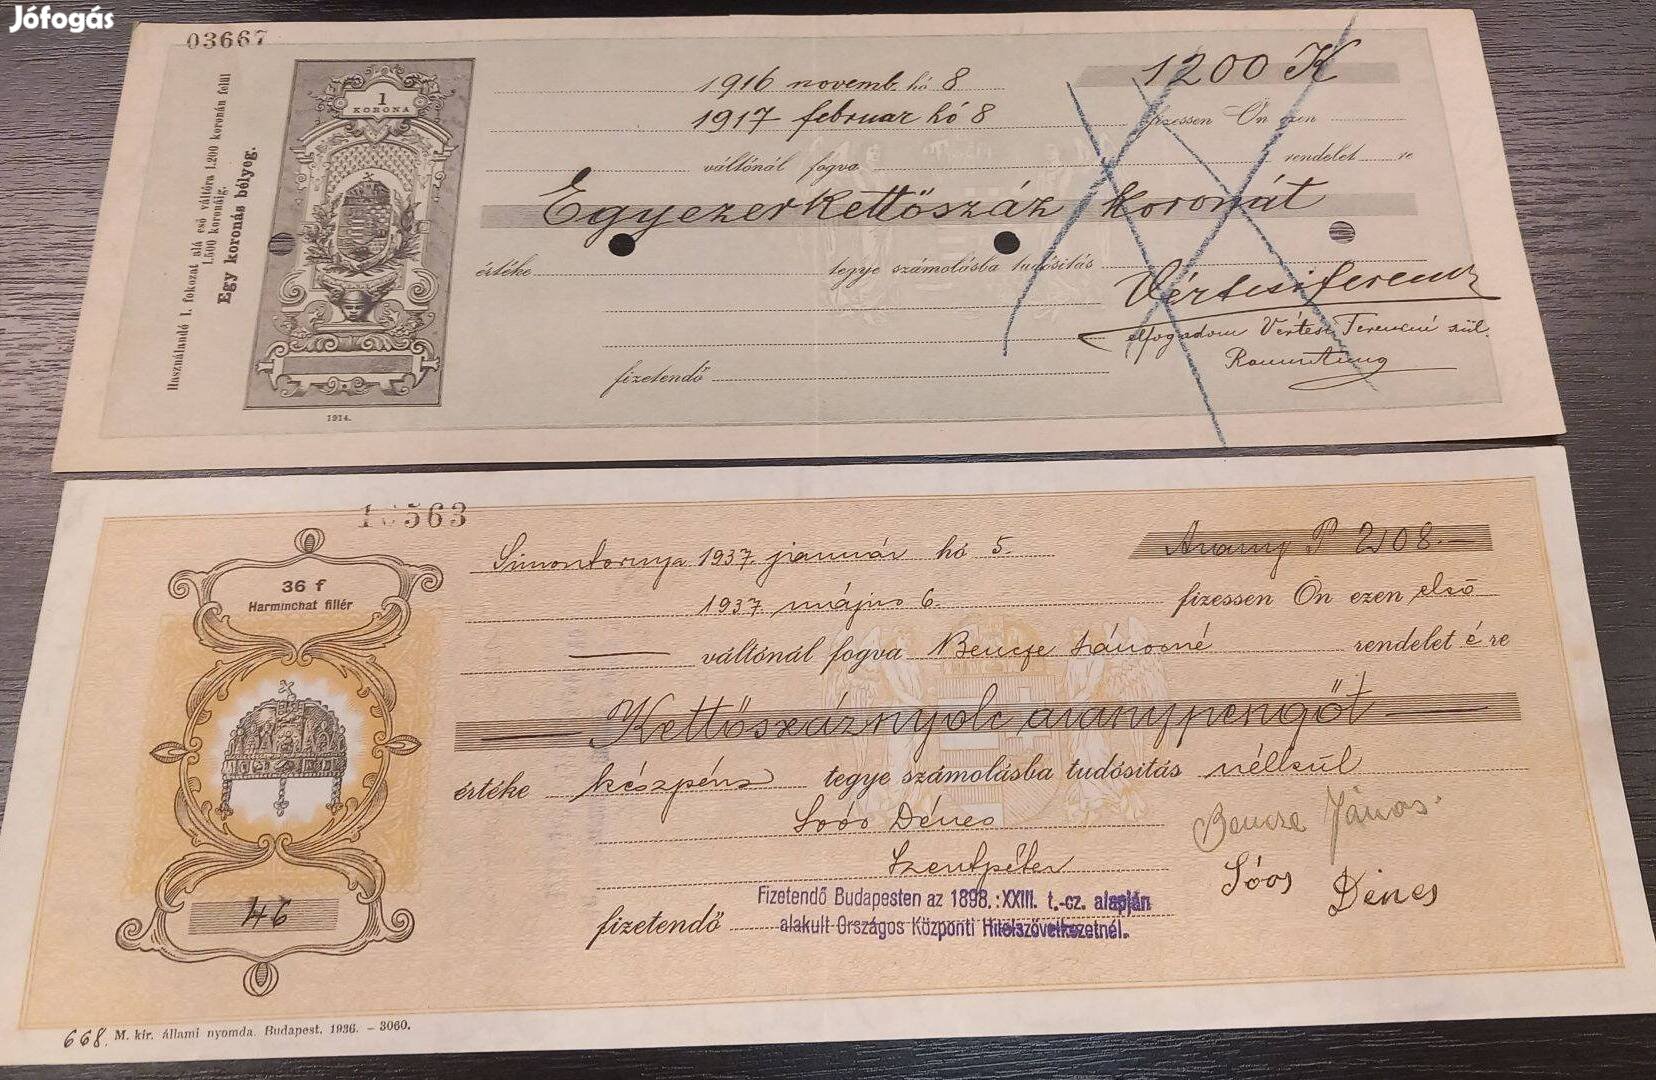 Jófogás
03667
1
KORONA
Használandó I. fokozat alá eső váltóra 1.200 koronán felül
1.500 koronáig.
Egy koronás bélyeg.
1914.
1916 novemb. hó 8
1200 K
1917 februar hó 8
fizessen Ön ezen
váltónál fogva rendelet re
Egyezerkettőszáz koronát
értéke tegye számolásba tudósitás
Vértesi Ferenc
elfogadom Vértesi Ferencné szül.
fizetendő
563
36 f
Harminchat fillér
Simontornya 1937. január hó 5.
Arany P 208.—
1937 május 6.
fizessen Ön ezen első
váltónál fogva Bencze Jánosné rendelet é re
Kettőszáznyolc aranypengőt
értéke készpénz tegye számolásba tudósitás nélkül
Soós Dénes
Bencze János
Szentpéter
Sóos Dénes
46
Fizetendő Budapesten az 1898.:XXIII. t.-cz. alapján
fizetendő alakult Országos Központi Hitelszövetkezetnél.
668. M. kir. állami nyomda. Budapest. 1936. — 3060.